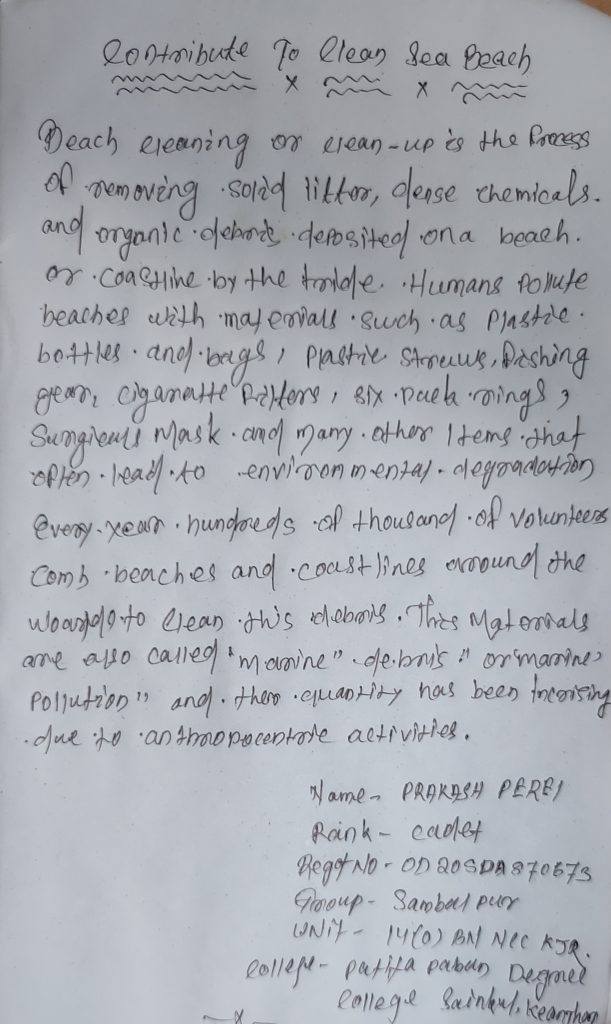 Contribute To Clean Sea Beach
Beach cleaning or clean-up is the Process
of removing solid litter, dense chemicals.
and organic debris deposited on a beach.
or coastline by the tride. Humans Pollute
beaches with materials such as Plastic
bottles and bags, Plastic Straws, Fishing
gear, Cigaratte Filters, six pack rings,
Surgicall Mask and many other Items that
often lead to environmental degradation
every year hundreds of thousand of volunteers
comb beaches and coastlines around the
to clean this debris. This Materials
are also called "marine" debris" or "marine
Pollution" and quantity has been Incrising
due to anthropocentric activities.
Name - PRAKASH PEREI
Rank - cadet
Regt NO - OD20SDA870573
Group - Sambalpur
UNIT - 14(O) BN NCC KJR.
College - patita paban Degree
College Sainkul, Keonjhar